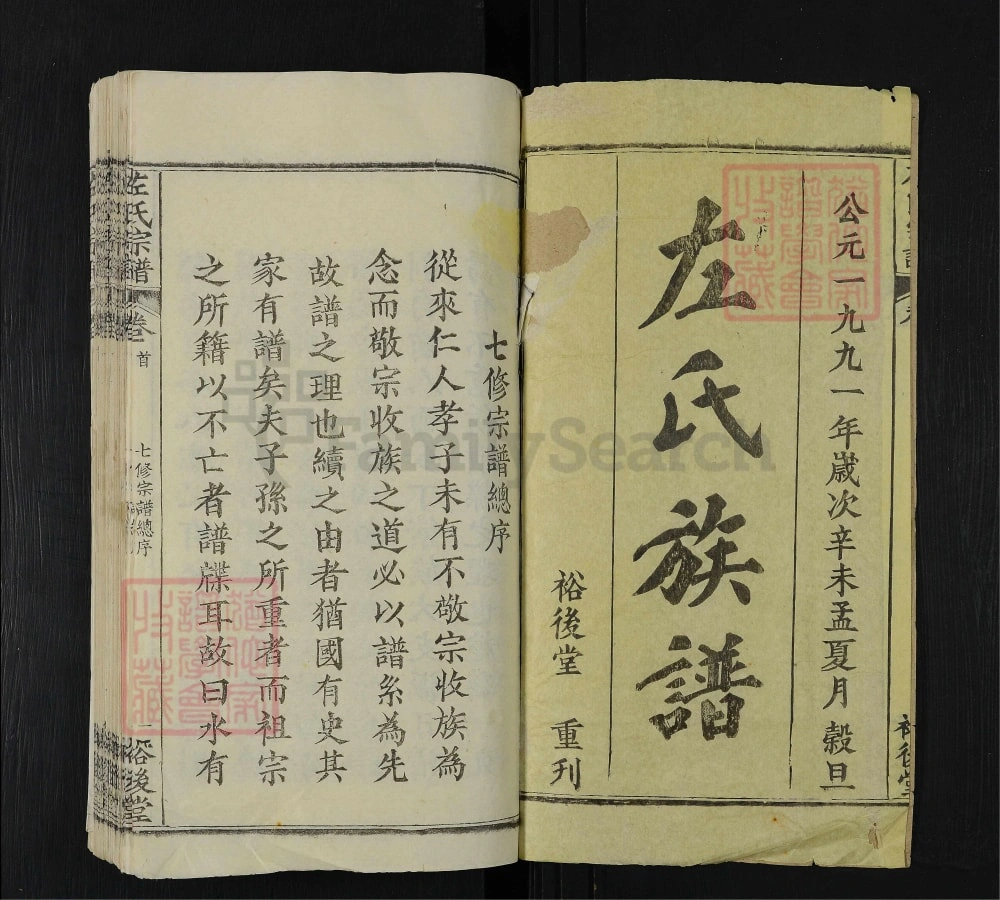 公元一九九一年歲次辛未孟夏月 穀旦
左氏族譜
裕後堂 重刊
裕後堂
七修宗譜總序
從來仁人孝子未有不敬宗收族為
念而敬宗收族之道必以譜系為先
故譜之理也續之由者猶國有史其
家有譜矣夫子孫之所重者而祖宗
之所籍以不亡者譜牒耳故曰水有
左氏宗譜 卷首 七修宗譜總序 一 裕後堂
FamilySearch